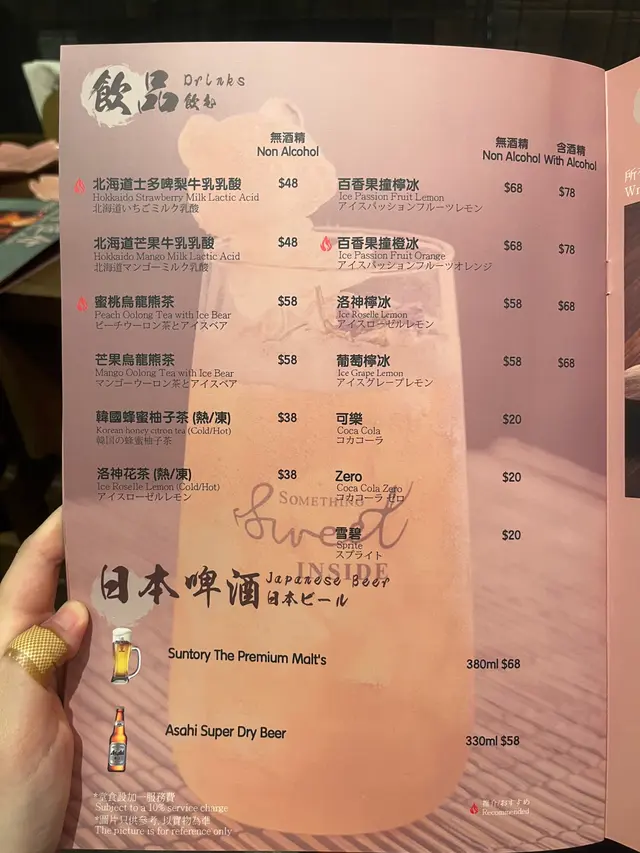 飲品 Drinks
飲む
無酒精
Non Alcohol
無酒精
Non Alcohol
含酒精
With Alcohol
北海道士多啤梨牛乳乳酸 $48
Hokkaido Strawberry Milk Lactic Acid
北海道いちごミルク乳酸
北海道芒果牛乳乳酸 $48
Hokkaido Mango Milk Lactic Acid
北海道マンゴーミルク乳酸
蜜桃烏龍熊茶 $58
Peach Oolong Tea with Ice Bear
ピーチウーロン茶とアイスベア
芒果烏龍熊茶 $58
Mango Oolong Tea with Ice Bear
マンゴーウーロン茶とアイスベア
韓國蜂蜜柚子茶 (熱/凍) $38
Korean honey citron tea (Cold/Hot)
韓国の蜂蜜柚子茶
洛神花茶 (熱/凍) $38
Ice Roselle Lemon (Cold/Hot)
アイスローゼルレモン
百香果撞檸冰 $68 $78
Ice Passion Fruit Lemon
アイスパッションフルーツレモン
百香果撞橙冰 $68 $78
Ice Passion Fruit Orange
アイスパッションフルーツオレンジ
洛神檸冰 $58 $68
Ice Roselle Lemon
アイスローゼルレモン
葡萄檸冰 $58 $68
Ice Grape Lemon
アイスグレープレモン
可樂 $20
Coca Cola
コカコーラ
Zero $20
Coca Cola Zero
コカコーラ ゼロ
雪碧 $20
Sprite
スプライト
SOMETHING
Sweet
INSIDE
日本啤酒 Japanese Beer
日本ビール
Suntory The Premium Malt's 380ml $68
Asahi Super Dry Beer 330ml $58
*堂食設加一服務費
Subject to a 10% service charge
*圖片只供參考, 以實物為準
The picture is for reference only
推介/おすすめ
Recommended